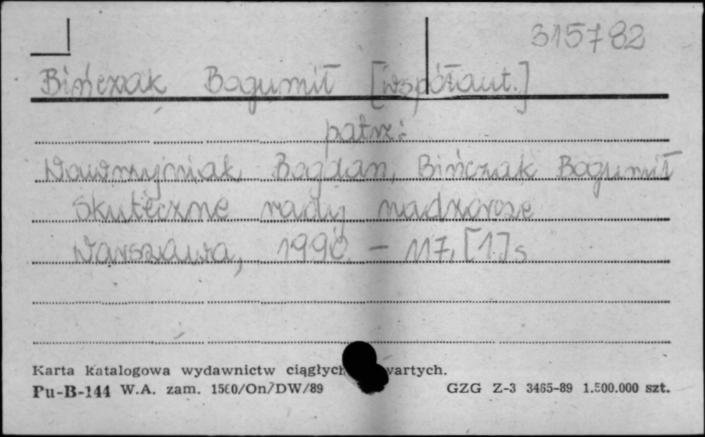 315782
Bińczak Bogumił [współaut.]
patrz:
Wawrzyniak, Bogdan, Bińczak Bogumił
Skuteczne rady nadzorcze
Warszawa, 1990. - 117, [1] s.
Karta katalogowa wydawnictw ciągłych wartych.
Pu-B-144 W.A. zam. 1560/On/DW/89 GZG Z-3 3465-89 1.500.000 szt.